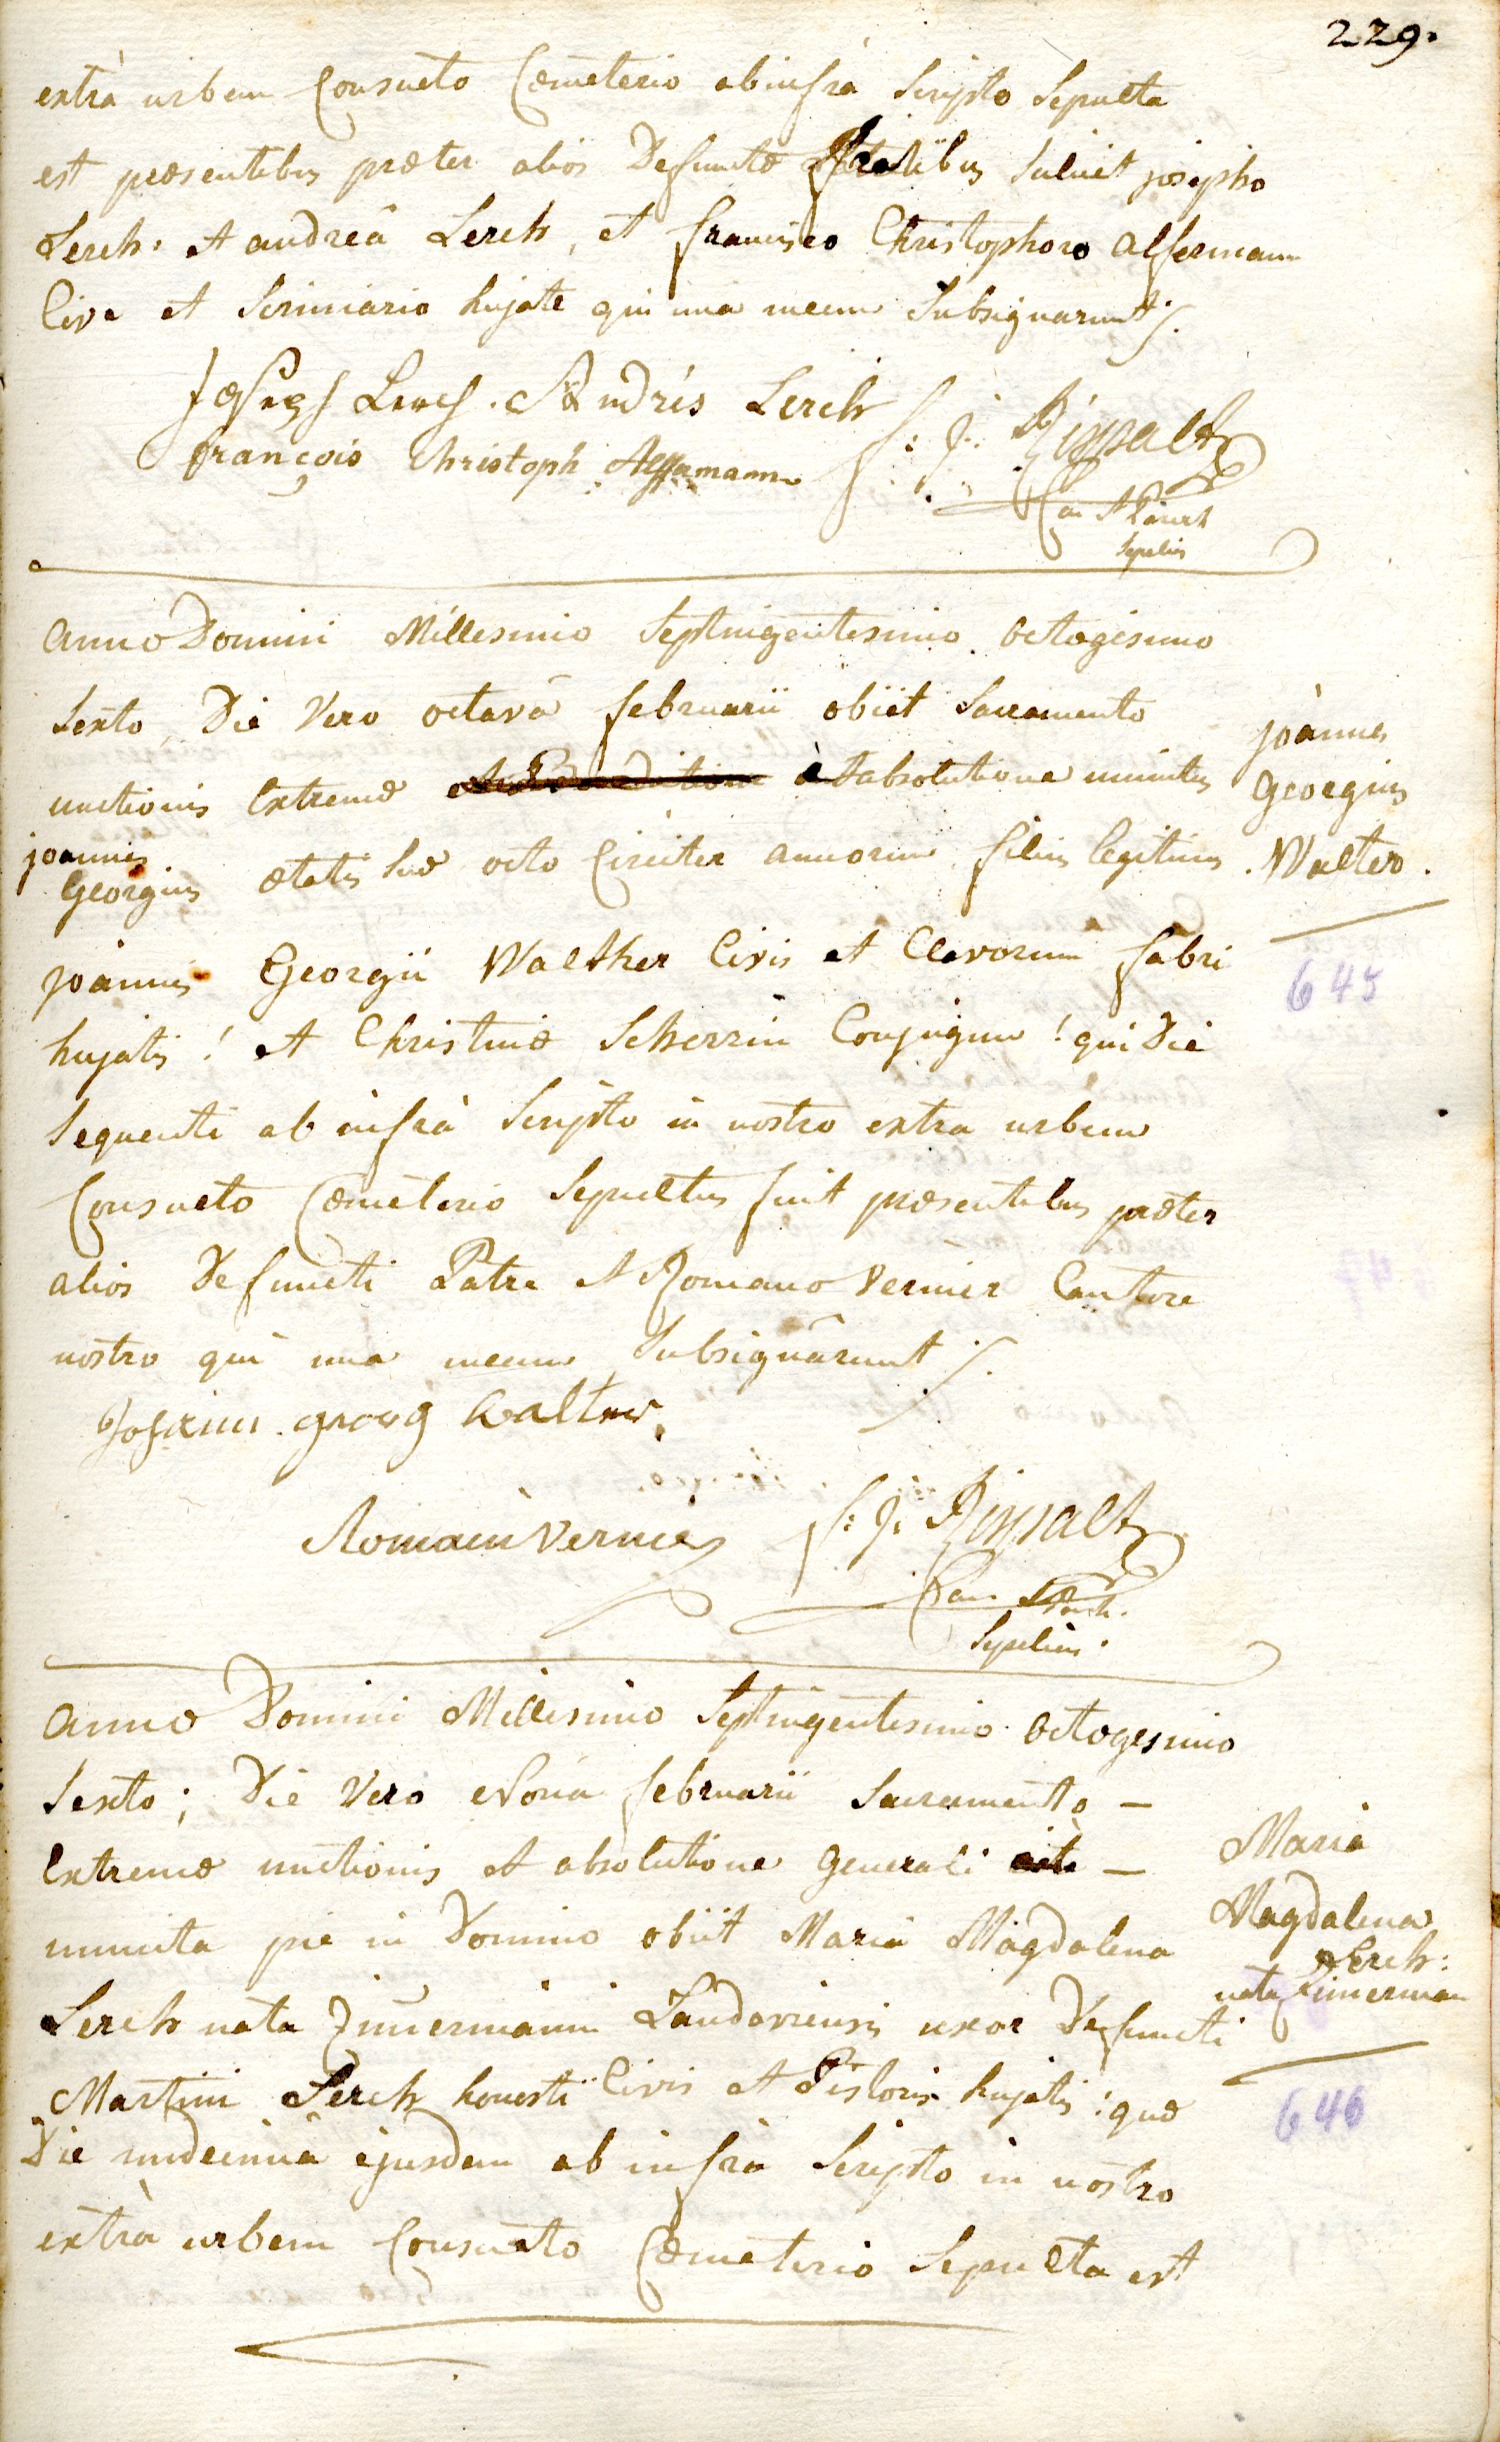 229.
extrà urbem Consueto Cœmeterio ab infrà Scripto Sepulta
est præsentibus præter aliôs Defunctæ fratribus Josepho
Lerch: et andreâ Lerch, et francisco Christophoro Affermann
Cive et Scriniario hujate qui unà mecum Subsignarunt ∕.
Joseph Lerch. Andris Lerch
françois Christoph Affermann
f: j: Rippalt
Can. et Paroch
Sepeliens
anno Domini Millesimo Septuigentesimo octogesimo
Sexto, Die Vero octavâ februarii obiit Sacramento
unctionis Extremæ et absolutione munitus
joannes
Georgius
ætatis suæ octo Circiter annorum filius legitimus
joannis Georgii Walther Civis et Clavorum fabri
hujatis! et Christinæ Scherrin Conjugum! qui Die
Sequenti ab infrà Scripto in nostro extra urbem
Consueto Cœmeterio Sepultus fuit præsentibus præter
aliôs Defuncti Patre et Romano Vernier Cantore
nostro qui unà mecum Subsignârunt ∕.
joànnes
Georgius
Walter.
645
Johannes georg Walter
Romain Vernier
f: j: Rippalt
Can. et Paroch.
Sepeliens.
anno Domini Millesimo Septuigentesimo octogesimo
Sexto; Die Vero Nonâ februarii Sacramento —
Extremæ unctionis et absolutione generali —
munita pie in Domino obiit Maria Magdalena
Lerch nata Zimermann Landaviensis uxor Defuncti
Martini Lerch honesti Civis et Pistoris hujatis: quæ
Die undecimâ ejusdem ab infrà Scripto in nostro
extrà urbem Consueto Cœmeterio Sepulta est
Maria
Magdalena
Lerch:
nata Zimerman
646